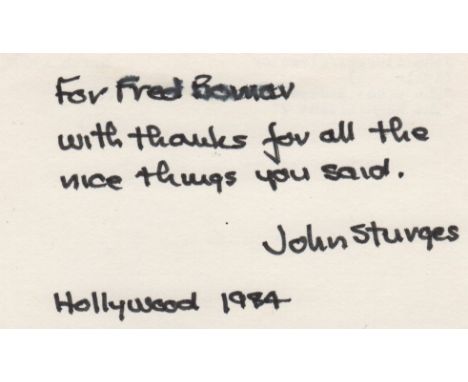 For Fred Bomar
with thanks for all the
nice things you said.
John Sturges
Hollywood 1984